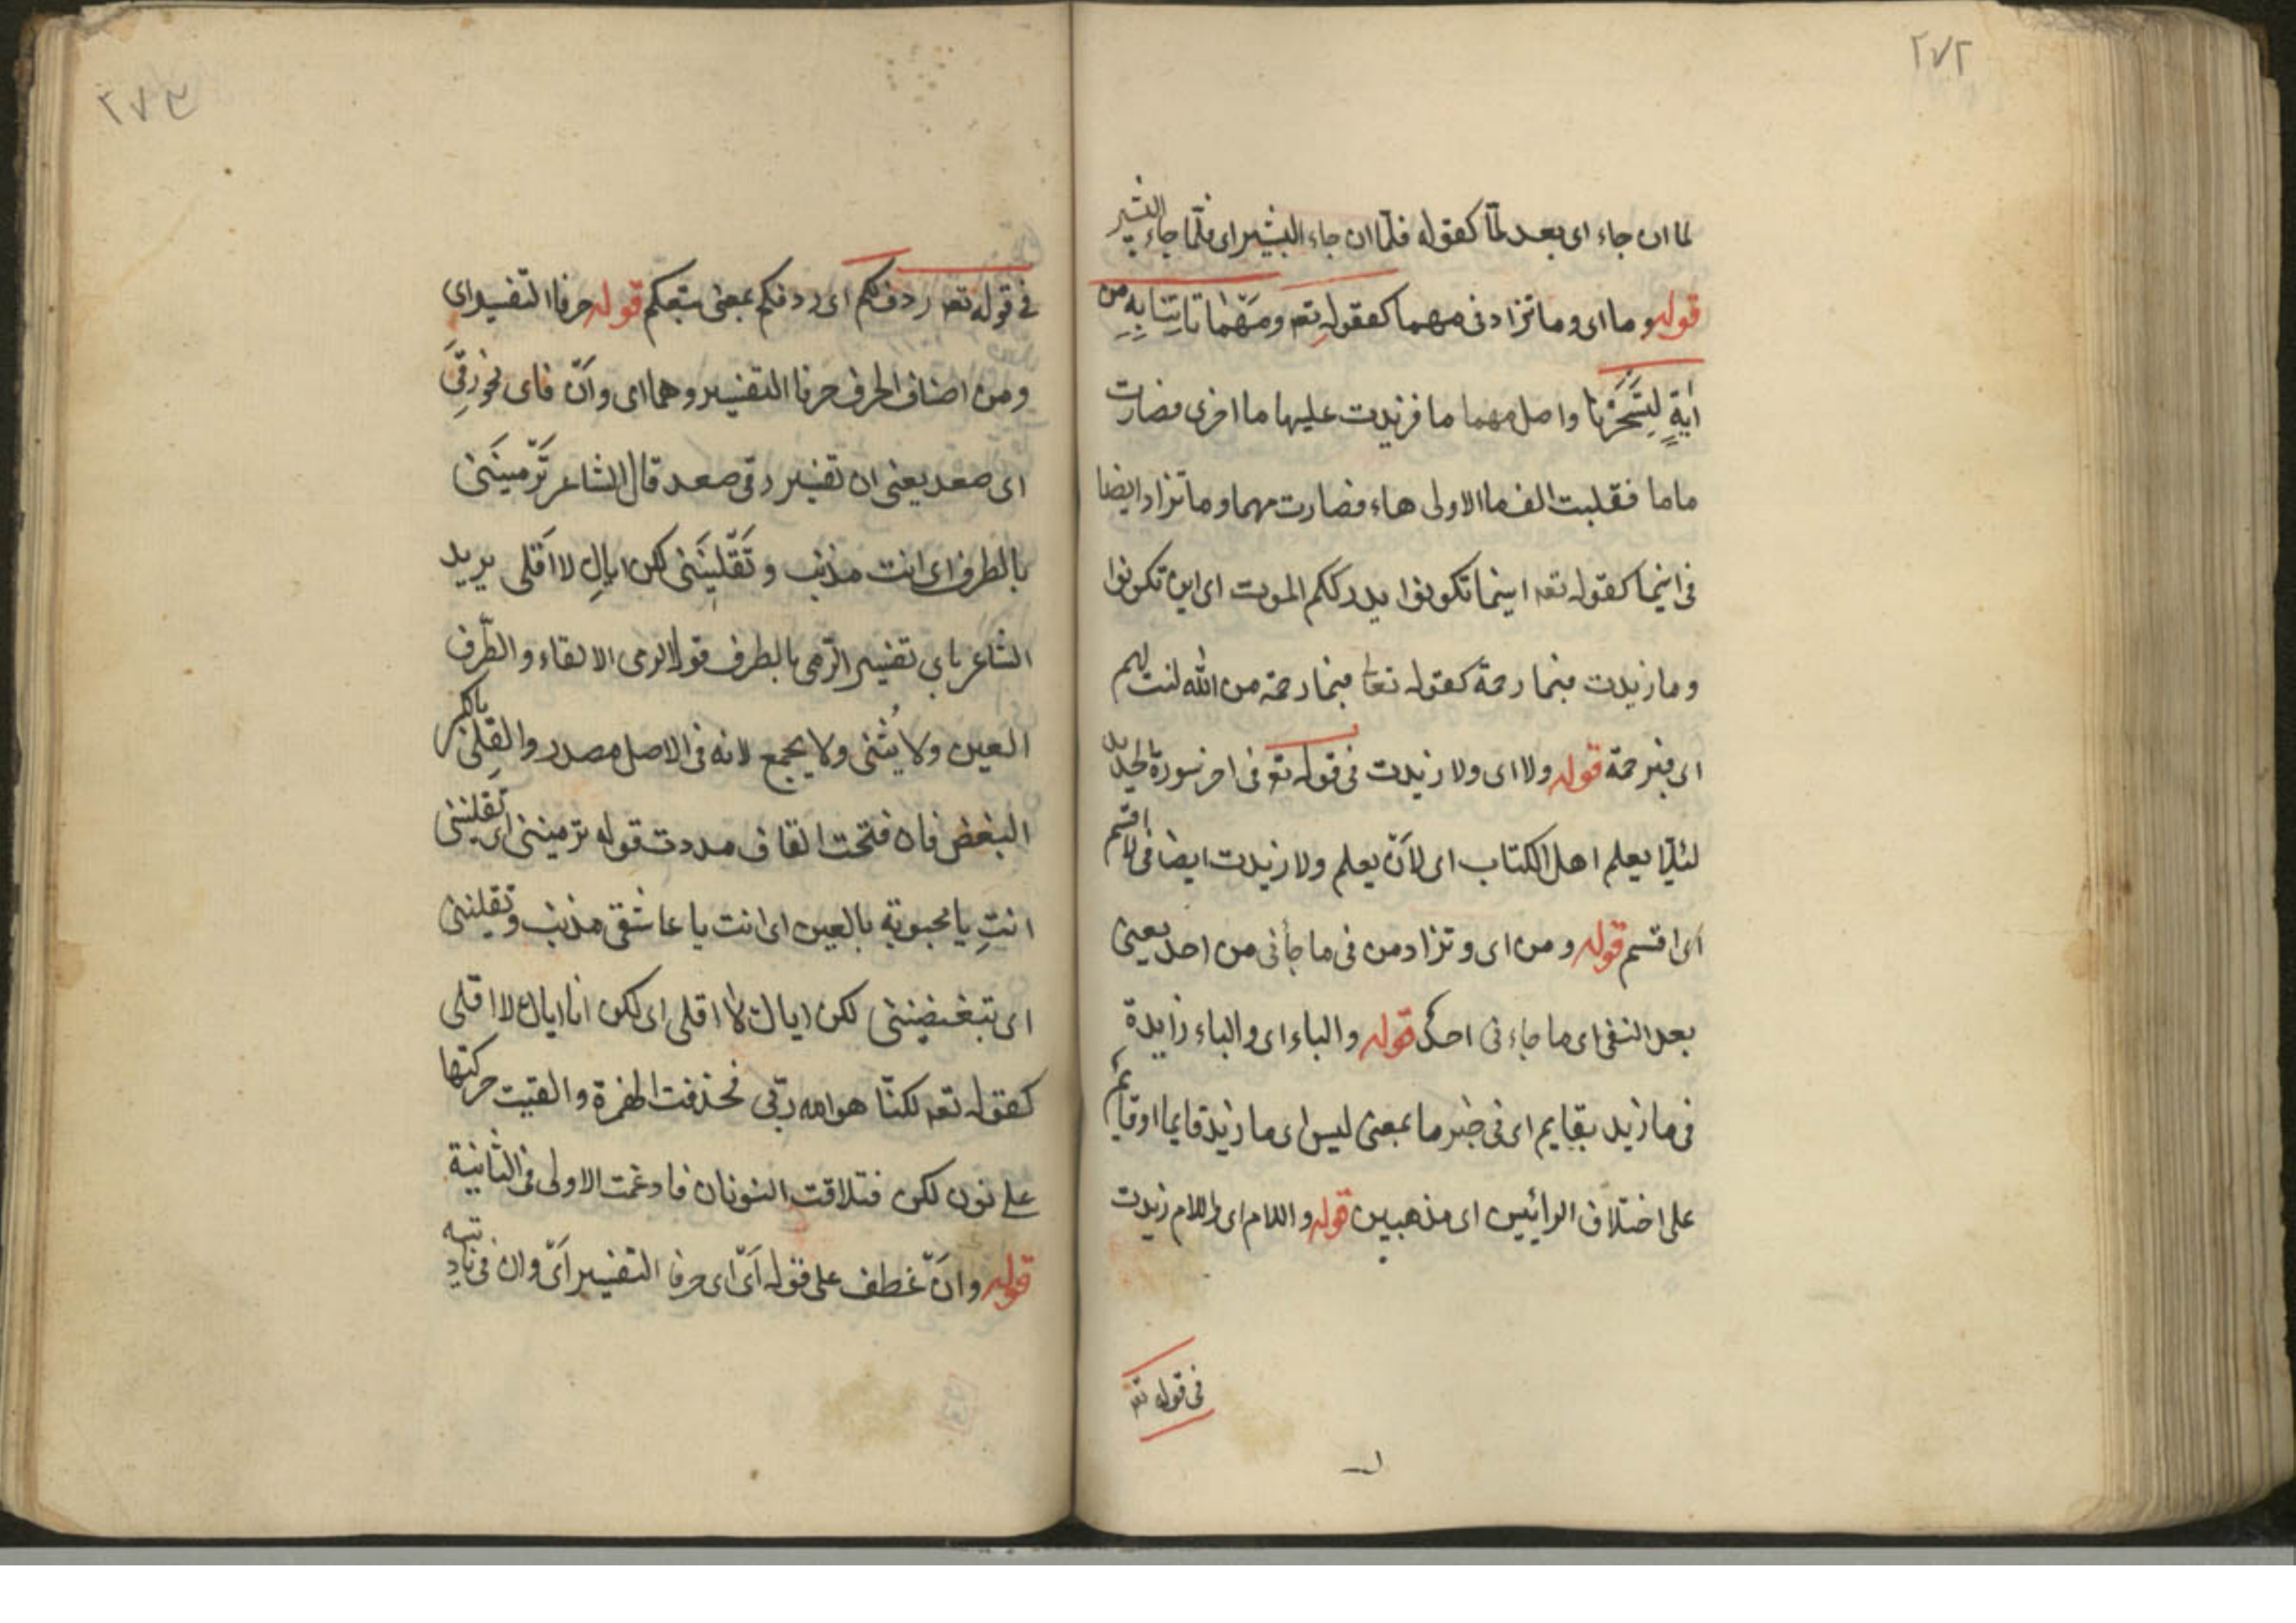 ٢٧٢
لما ان جاء اى بعد لمّا كقوله فلمّا ان جاء البشير اى فلمّا جاء البشير
قوله وما اى وما تزاد فى مهما كقوله تعه ومَهْمَا تَأتِنَا بِهِ من
اٰيةٍ لِتَسْحَرَنا واصل مهما ما فزيدت عليها ما اخرى فصارت
ماما فقلبت الف ما الاولى هاء فصارت مهما وما تزاد ايضا
فى اينما كقوله تعه اينما تكونوا يدرككم الموت اى اين تكونوا
وما زيدت فبما رحمة كقوله تعا فبما رحمة من الله لنت لهم
اى فبرحمة قوله ولا اى ولا زيدت فى قوله تع فى اخر سورة الحديد
لئلّا يعلم اهل الكتاب اى لاَنْ يعلم ولا زيدت ايضا فى لا اقسم
اى اقسم قوله ومن اى وتزاد من فى ما جأنى من احد يعنى
بعد النفى اى ما جاءنى احد قوله والباء اى والباء زايدة
فى ما زيد بقايم اى فى خبر ما بمعنى ليس اى ما زيد قايما او قايم
على اختلاف الرائيين اى مذهبين قوله واللام اى واللام زيدت
فى قوله تعه
٢٧٣
فى قوله تعه ردف لكم اى ردفكم بمعنى تبعكم قوله حرفا التفسير اى
ومن اصناف الحرف حرفا التفسير وهما اى وَاَنْ فاى نحو رَقِىَ
اى صعد يعنى ان تفسير رقى صعد قال الشاعر تَرْمِينَنى
بالطرف اى انت مذنب و تَقْلِينَنى لكن اياكِ لا اَقلى يريد
الشاعر باى تفسير الرّمى بالطرف قوله الرمى الالقاء والطّرف
العين ولا يُثنى ولا يجمع لانه فى الاصل مصدر والقِلى بالكسر
البغض فان فتحت القاف مددت قوله ترميننى اى تقليننى
انتِ يا محبوبة بالعين اى انت يا عاشقى مذنب وتقليننى
اى تبغضيننى لكن اياك لا اقلى اى لكن انا اياك لا اقلى
كقوله تعه لكنّا هو الله ربّى فحذفت الهمزة والقيت حركتها
على نون لكن فتلاقت النونان فادغمت الاولى فى الثانية
قوله وانْ عطف على قوله اَىْ اى حرفا التفسير اَىْ وان فى ناديته